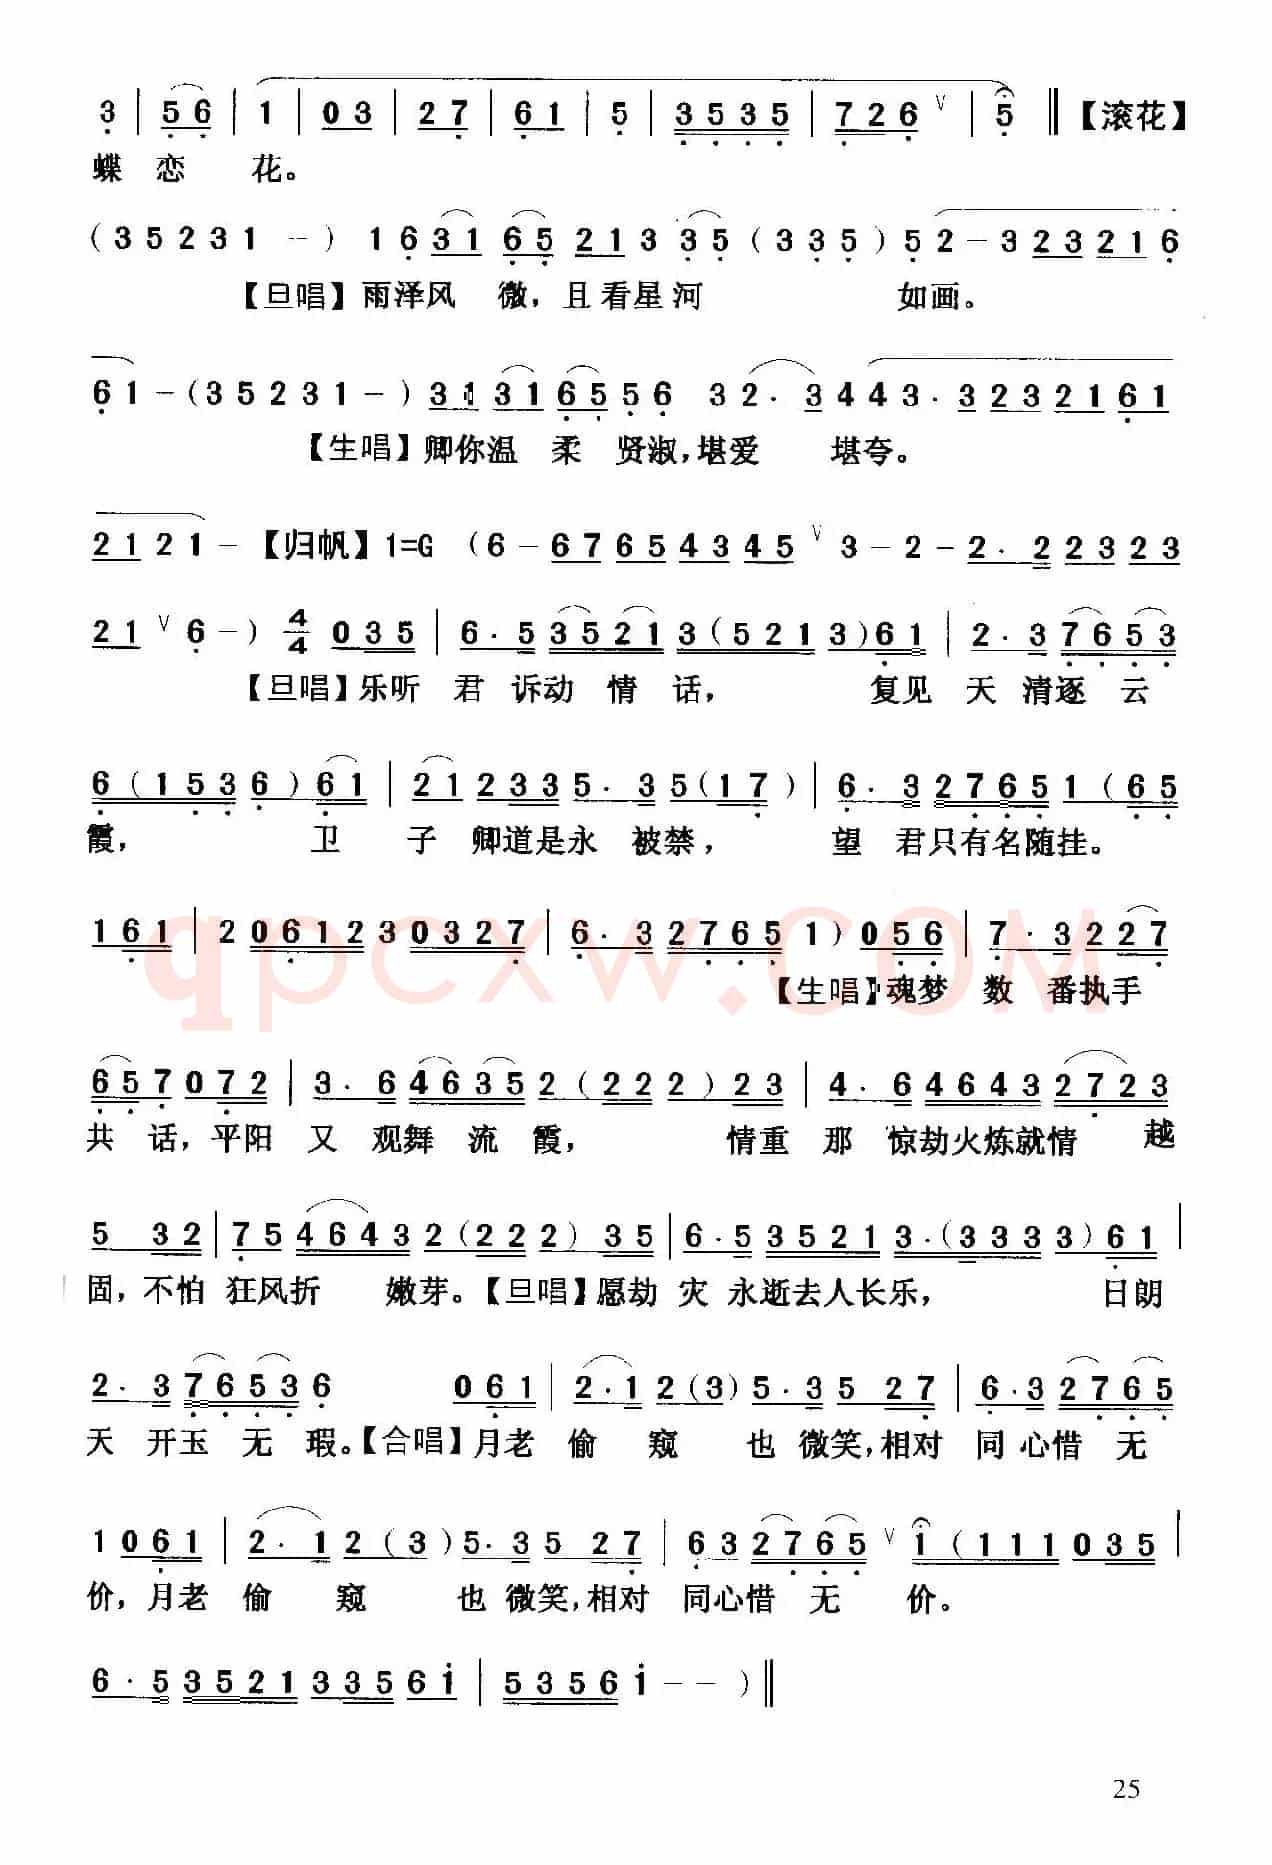 3 | 5 6 | 1 | 0 3 | 2 7 | 6 1 | 5 | 3 5 3 5 | 7 2 6 V | 5 ‖【滚花】
蝶 恋 花。
(3 5 2 3 1 －) 1 6 3 1 6 5 2 1 3 3 5 (3 3 5) 5 2 － 3 2 3 2 1 6
【旦唱】雨泽风 微，且看星河 如画。
6 1 － (3 5 2 3 1 －) 3 1 3 1 6 5 5 6 3 2 · 3 4 4 3 · 3 2 3 2 1 6 1
【生唱】卿你温 柔 贤淑，堪爱 堪夸。
2 1 2 1 －【归帆】1=G (6 － 6 7 6 5 4 3 4 5 V 3 － 2 － 2 · 2 2 3 2 3
2 1 V 6 －) 4/4 0 3 5 | 6 · 5 3 5 2 1 3 (5 2 1 3) 6 1 | 2 · 3 7 6 5 3
【旦唱】乐听 君 诉动 情 话， 复见 天 清逐 云
6 (1 5 3 6) 6 1 | 2 1 2 3 3 5 · 3 5 (1 7) | 6 · 3 2 7 6 5 1 (6 5
霞， 卫 子 卿道是永 被禁， 望 君只有名随挂。
1 6 1 | 2 0 6 1 2 3 0 3 2 7 | 6 · 3 2 7 6 5 1) 0 5 6 | 7 · 3 2 2 7
qpcxw.com
【生唱】魂梦 数 番执手
6 5 7 0 7 2 | 3 · 6 4 6 3 5 2 (2 2 2) 2 3 | 4 · 6 4 6 4 3 2 7 2 3
共 话，平阳 又 观舞 流 霞， 情重 那 惊劫火炼就情 越
5 3 2 | 7 5 4 6 4 3 2 (2 2 2) 3 5 | 6 · 5 3 5 2 1 3 · (3 3 3 3) 6 1 |
固，不怕 狂风折 嫩芽。【旦唱】愿劫 灾 永逝去人长乐， 日朗
2 · 3 7 6 5 3 6 0 6 1 | 2 · 1 2 (3) 5 · 3 5 2 7 | 6 · 3 2 7 6 5
天 开玉 无 瑕。【合唱】月老 偷 窥 也 微笑，相对 同 心惜 无
1 0 6 1 | 2 · 1 2 (3) 5 · 3 5 2 7 | 6 3 2 7 6 5 V 1 (1 1 1 0 3 5 |
价，月老 偷 窥 也 微笑，相对 同心惜 无 价。
6 · 5 3 5 2 1 3 3 5 6 1 | 5 3 5 6 1 － －) ‖
25